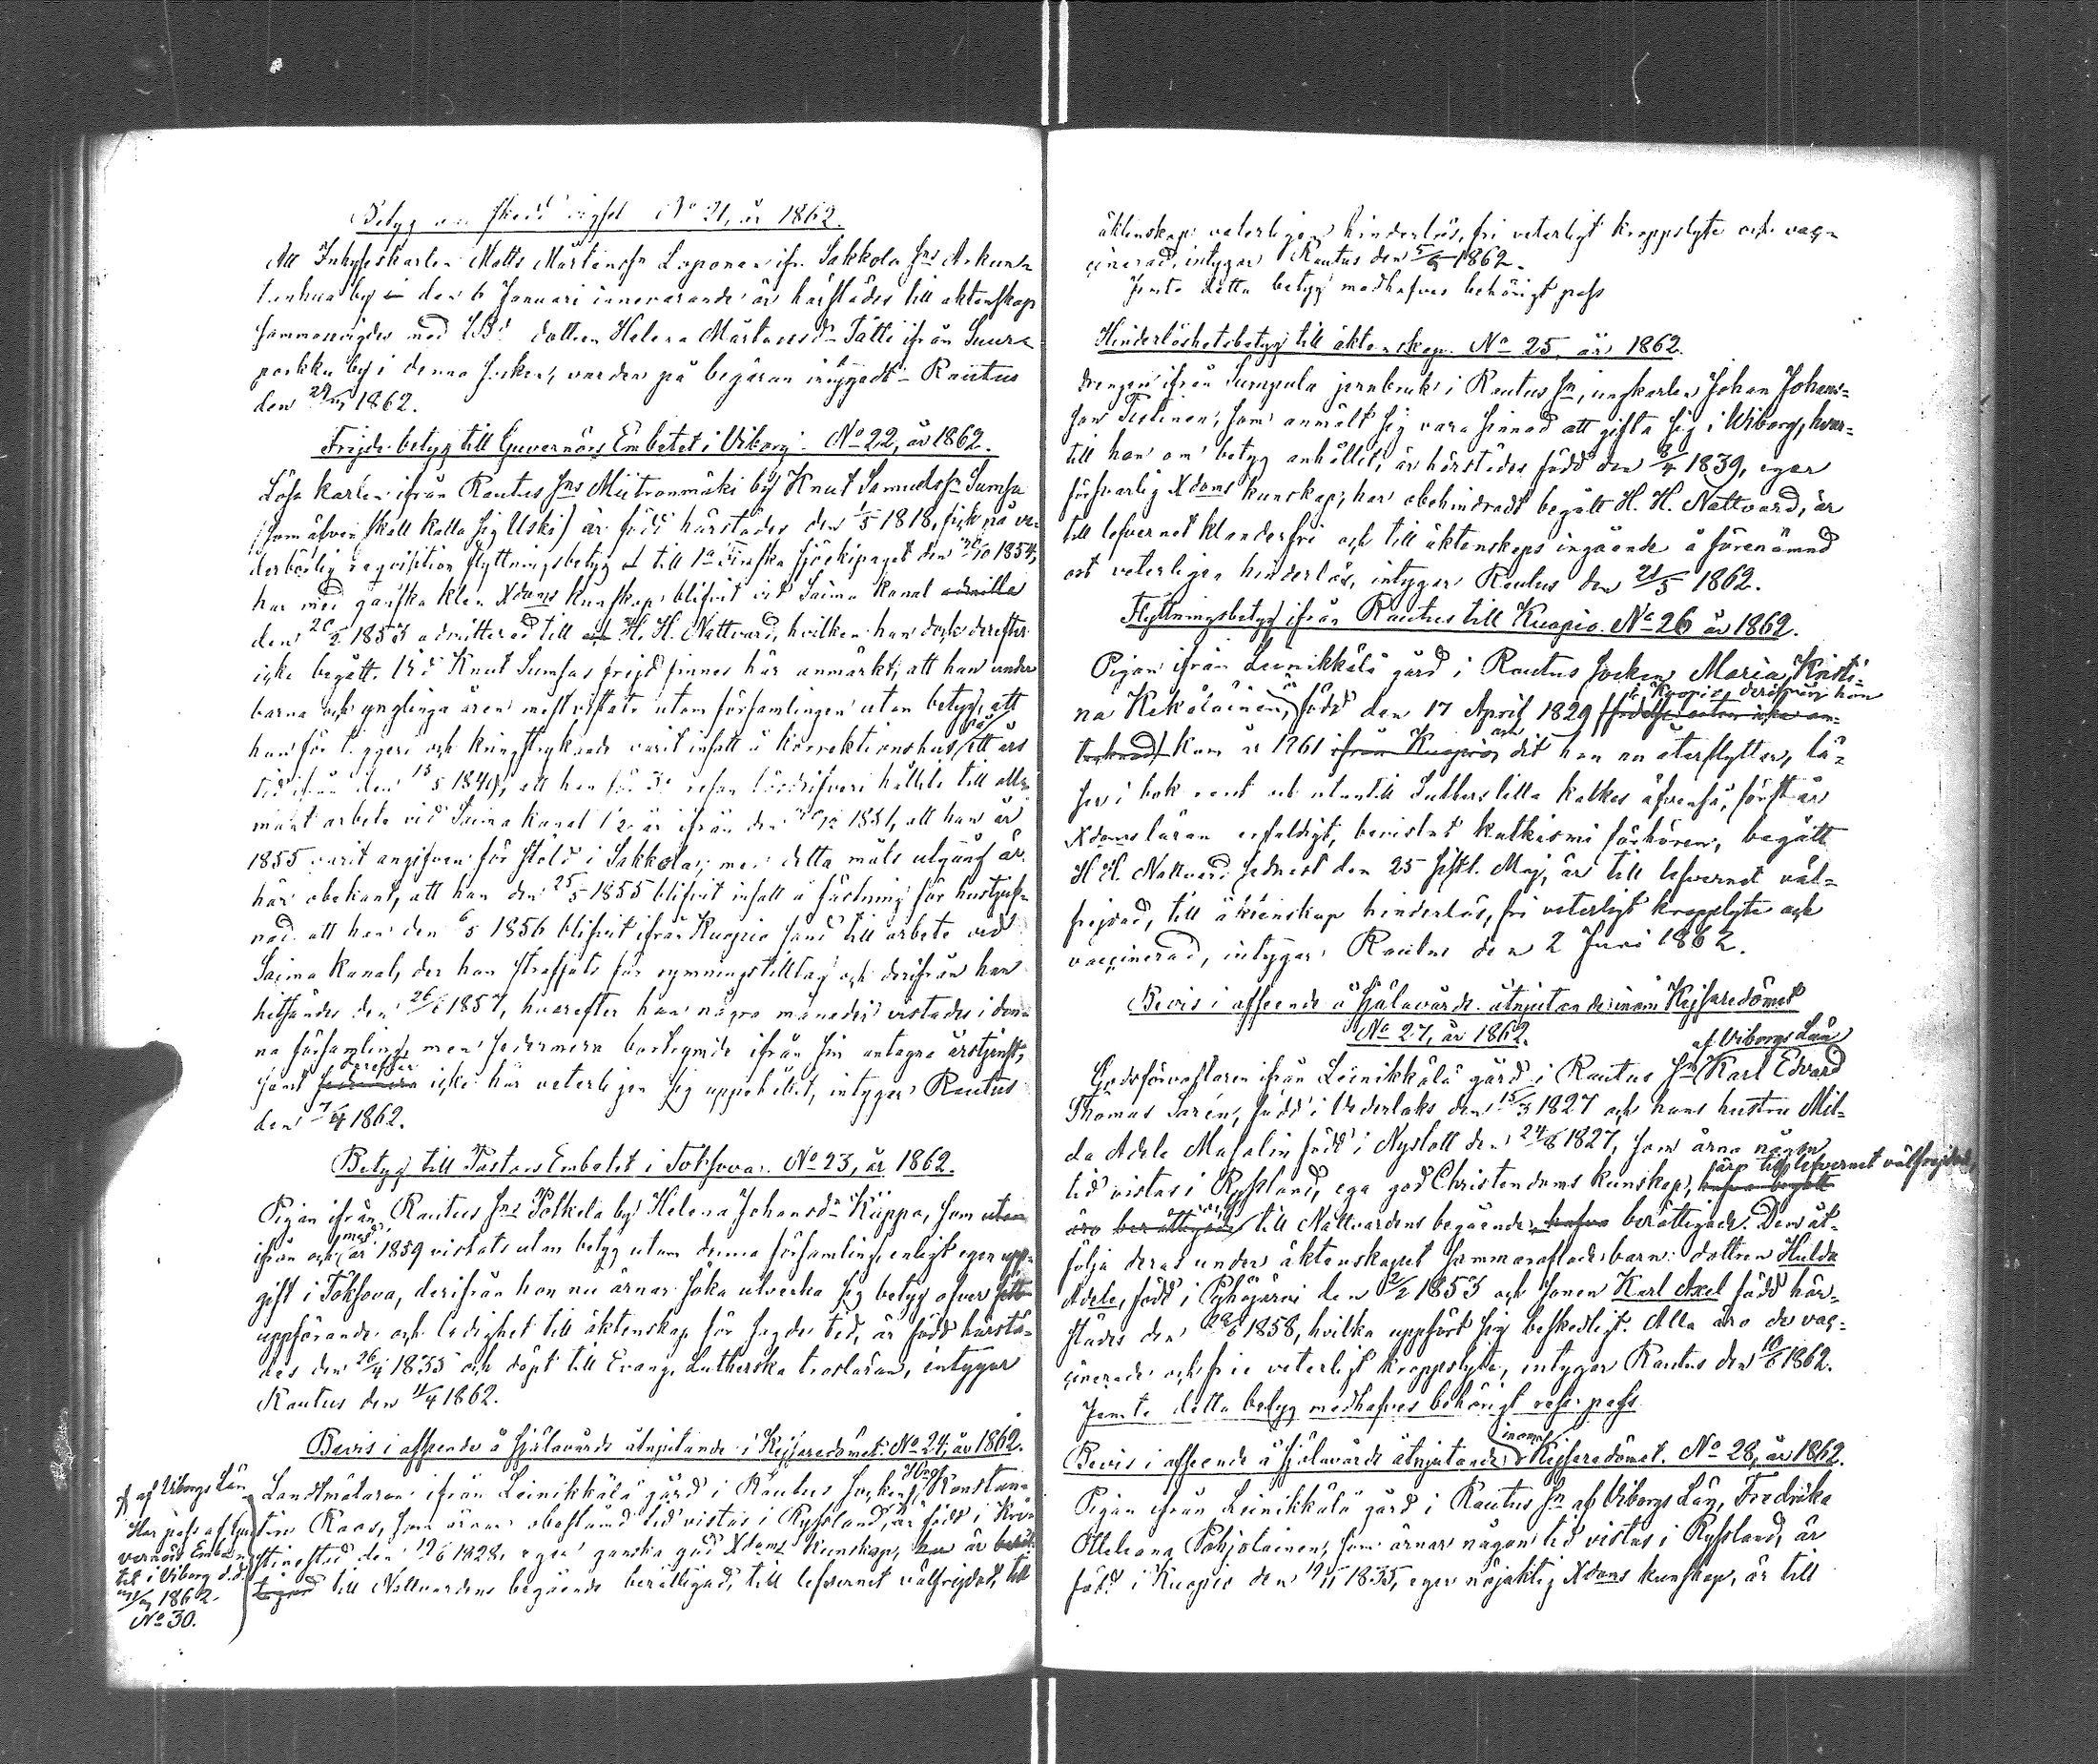 Betyg om skedd vigsel No 21, år 1862.
Att Inhyseskarlen Matts Mårtenssn Loponen ifr. Sakkola Sns Arkun-
tanhua by den 6 Januari innevarande år härstädes till äktenskap
sammanvigdes med Bd dottren Helena Mårtensd- Tätti ifrån Suure
porkku by i denna socken, varder på begäran intygadt - Rautus
den 1862.
Frejde betyg till Guvernörs Embetet i Viborg. No 22, år 1862.
Lösa karlen ifrån Rautus Sns Miitronmäki by Knut Samuelssn Sumsa
(som äfven skall kalla sig Uski) är född härstädes den 1/5 1818, fick på ve-
derbörlig reqvisition flyttningsbetyg till 1a Finska Sjöekipaget den /10 1854,
har med ganska klen Xdoms kunskap blifvit vid Saima kanal
den 20/2 1853 admitterad till H. H. Nattvard, hvilken han dock derefter
icke begått. Vid Knut Sumsas frejd finnes här anmärkt, att han under
barna och ynglinga åren mest vistats utom församlingen utan betyg, att
han för tiggeri och kringstrykande varit insatt å korrektionshus på ett års
tid ifrån den 13/5 1840, att han för 3e resan lösdrifveri hållits till all-
mänt arbete vid Saima kanal 1/2 år ifrån den /12 1851, att han år
1855 varit angifven för stöld i Sakkola, men detta måls utgång är
här obekant, att han den 25/5 1855 blifvit insatt å fästning för hustjuf-
nad, att han den 6/5 1856 blifvit ifrån Kuopio sänd till arbete vid
Saima Kanal, der han straffats för rymningstilltag och derifrån han
hitsändes den 26/ 1857, hvarefter han några månader vistades i den-
na församling, men sedermera bortrymde ifrån sin antagna årstjenst,
samt derefter icke här veterligen sig uppehållit, intygar Rautus
den 7/4 1862.
Betyg till Pastors Embetet i Toksova. No 23, år 1862.
Pigan ifrån Rautus Sns Potkela by Helena Johansd- Kiippa, som
ifrån och med år 1859 vistats utan betyg utom denna församling, enligt egen upp-
gift i Toksova, derifrån hon nu ärnar söka utverka sig betyg öfver
uppförande och ledighet till äktenskap för sagde tid, är född härstä-
des den 26/4 1835 och döpt till Evang. Lutherska trosläran, intygar
Rautus den 11/4 1862.
Bevis i afseende å Själavårds åtnjutande i Kejsaredömet. No 24, år 1862.
af Viborgs Län
Landtmätaren ifrån Leinikkälä gård i Rautus Socken, Konstan-
tin Roos, som ärnar obestämd tid vistas i Ryssland, är född i Kri-
stinestad den 19/6 1828, eger ganska god Xdoms Kunskap, är
till Nattvardens begående berättigad, till lefvernet välfrejdad, till
Har pass af Gu-
vernörs Embe-
tet i Viborg d.d.
1862.
No 30.
äktenskap veterligen hinderlös, fri veterligt kroppslyte och vac-
cinerad, intygar Rautus den 5/5 1862.
Jemte detta betyg medhafves behörigt pass
Hinderlöshetsbetyg till äktenskap. No 25, år 1862.
Drengen ifrån Sumpula jernbruk i Rautus Sn, ungkarlen Johan Johans-
son Teslinen, som anmält sig vara sinnad att gifta sig i Wiborg, hvar-
till han om betyg anhållit, är härstädes född den 8/4 1839, eger
försvarlig Xdoms kunskap, har obehindradt begått H. H. Nattvard, är
till lefvernet klanderfri och till äktenskaps ingående å förenämnd
ort veterligen hinderlös, intygar Rautus den 21/5 1862.
Flyttningsbetyg ifrån Rautus till Kuopio. No 26 år 1862.
Pigan ifrån Leinikkälä gård i Rautus Socken Maria Kristi-
na Kekäläinen, är född den 17 April 1829 i Kuopio, derifrån hon
kom år 1861 och dit hon nu återflyttar, lä-
ser i bok rent ut utantill Lutters lilla katkes äfvenså, förstår
Xdomsläran enfaldigt, bevistat katkismi förhören, begått
H. H. Nattvard sednast den 25 sistl. Maj, är till lefvernet väl-
frejdad, till äktenskap hinderlös, fri veterligt kropplyte och
vaccinerad, intygar Rautus den 2 Juni 1862.
Bevis i afseende å Själavårds åtnjutande inom Kejsaredömet
No 27, år 1862.
af Viborgs Län
Godsförvaltaren ifrån Leinikkälä gård i Rautus Sn Karl Edvard
Thomas Sarén, född i Vederlaks den 15/3 1827 och hans hustru Mil-
da Adele Masalin född i Nyslott den 24/8 1827, som ärna någon
tid vistas i Ryssland, ega god Christendoms kunskap, äro till lefvernet välfrejdade,
äro till Nattvardens begående berättigade. Dem åt-
följa deras under äktenskapet sammanaflade barn: dottren Hulda
Adele, född i Pyhäjärvi den 2/2 1853 och sonen Karl Axel född här-
städes den 22/6 1858, hvilka uppfört sig beskedligt. Alla äro de vac-
cinerade och frie veterligt kroppslyte, intygar Rautus den 10/6 1862.
Jemte detta betyg medhafves behörigt respass.
Bevis i afseende å Själavårds åtnjutande inom Kejsaredömet. No 28, år 1862.
Pigan ifrån Leinikkälä gård i Rautus Sn af Viborgs Län, Fredrika
Ottiliana Pohjolainen, som ärnar någon tid vistas i Ryssland, är
född i Kuopio den 19/11 1835, eger nöjaktig Xdoms kunskap, är till